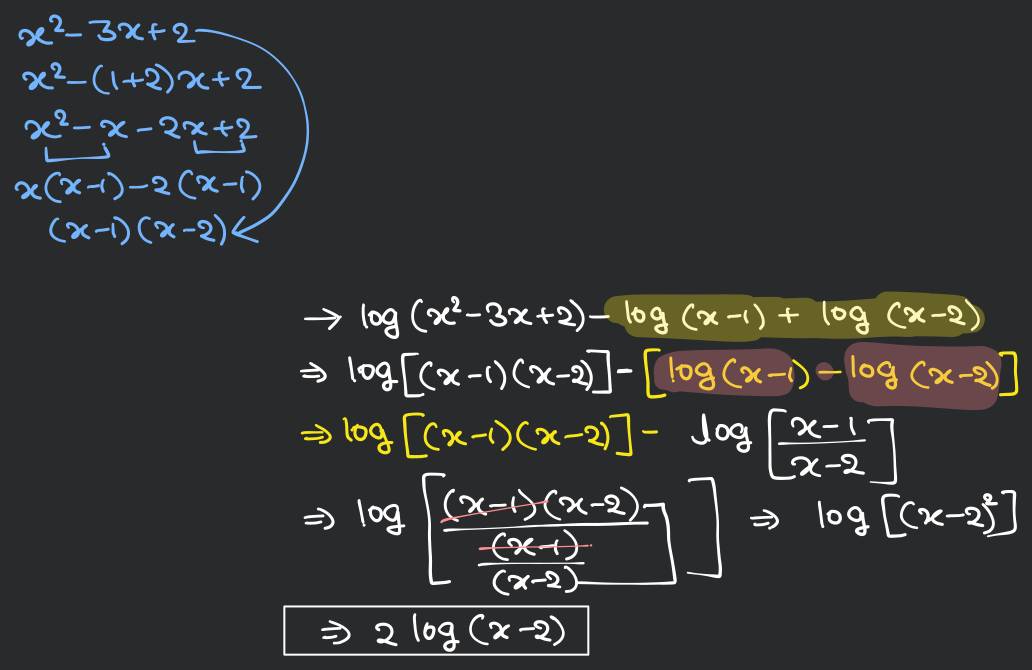 x² - 3x + 2
x² - (1+2)x + 2
x² - x - 2x + 2
x(x-1) - 2(x-1)
(x-1)(x-2)
→ log(x² - 3x + 2) - log(x-1) + log(x-2)
⇒ log[(x-1)(x-2)] - [log(x-1) - log(x-2)]
⇒ log[(x-1)(x-2)] - log[(x-1)/(x-2)]
⇒ log[((x-1)(x-2))/((x-1)/(x-2))] ⇒ log[(x-2)²]
⇒ 2 log(x-2)